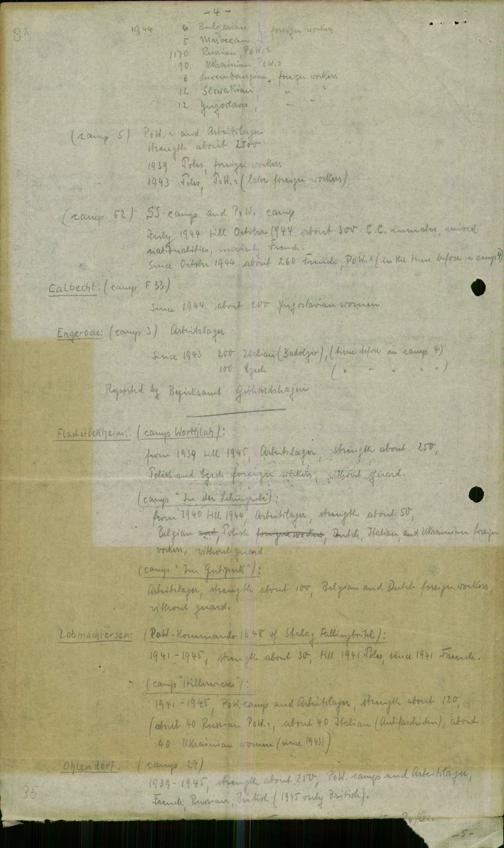 - 4 -
1944 6 Bulgarian foreign workers
5 Moroccan
1170 Russian P.o.W.s
90 Ukrainian P.o.W.s
8 Luxembourgian, foreign workers
12 Slovakian " "
12 Yugoslavs, " "
(camp 5) PoW.s and Arbeitslager
strength about 2500
1939 Poles, foreign workers
1943 Poles, PoW.s (later foreign workers)
(camp 52) SS-camps and PoW. camp
July 1944 till October 1944 about 300 C.C. inmates, mixed
nationalities, mainly French.
Since October 1944 about 260 French, PoW.s (in the time before in camp
Calbecht: (camp F 33)
Since 1944 about 200 Yugoslavian women
Engerode: (camp 3) Arbeitslager
Since 1943 200 Italian (Badoglio), (time before in camp 4)
100 Czech ( " " " " " )
Reported by Bezirksamt Gebhardshagen
Flachstöckheim: (camp Worthlah):
from 1939 till 1945, Arbeitslager, strength about 250,
Polish and Czech foreign workers, without guard.
(camps "In der :
from 1940 till 1944, Arbeitslager, strength about 50,
Belgian and, Polish foreign workers, Dutch, Italian and Ukrainian foreign
workers, without guard
(camps "Im Gutspark"):
Arbeitslager, strength about 100, Belgian and Dutch foreign workers,
without guard.
Lobmachtersen: (PoW-Kommando 1648 of Stalag Fallingbostel):
1941-1945, strength about 30, till 1941 Poles, since 1941 French.
(camp "Hillenwiese"):
1941-1945, PoW.camp and Arbeitslager, strength about 120,
(about 40 Russian PoW.s, about 40 Italian (Antifaschisten), about
40 Ukrainian women (since 1943))
Ohlendorf: (camps 27)
1939-1945, strength about 250, PoW. camps and Arbeitslager,
French, Russian, British (1945 only British).
36
- 5 -